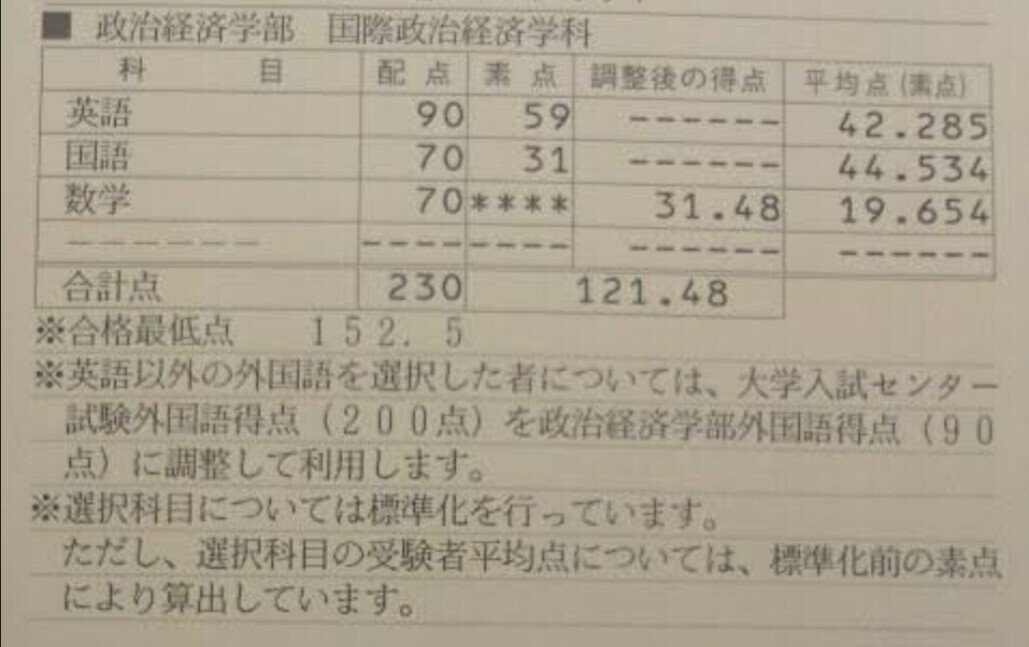 ■ 政治経済学部 国際政治経済学科
科 目 配 点 素 点 調整後の得点 平均点(素点)
英語 90 59 ------ 42.285
国語 70 31 ------ 44.534
数学 70 **** 31.48 19.654
------- ---- ---- ------ ------
合計点 230 121.48
※合格最低点 152.5
※英語以外の外国語を選択した者については、大学入試センター
試験外国語得点（200点）を政治経済学部外国語得点（90
点）に調整して利用します。
※選択科目については標準化を行っています。
ただし、選択科目の受験者平均点については、標準化前の素点
により算出しています。